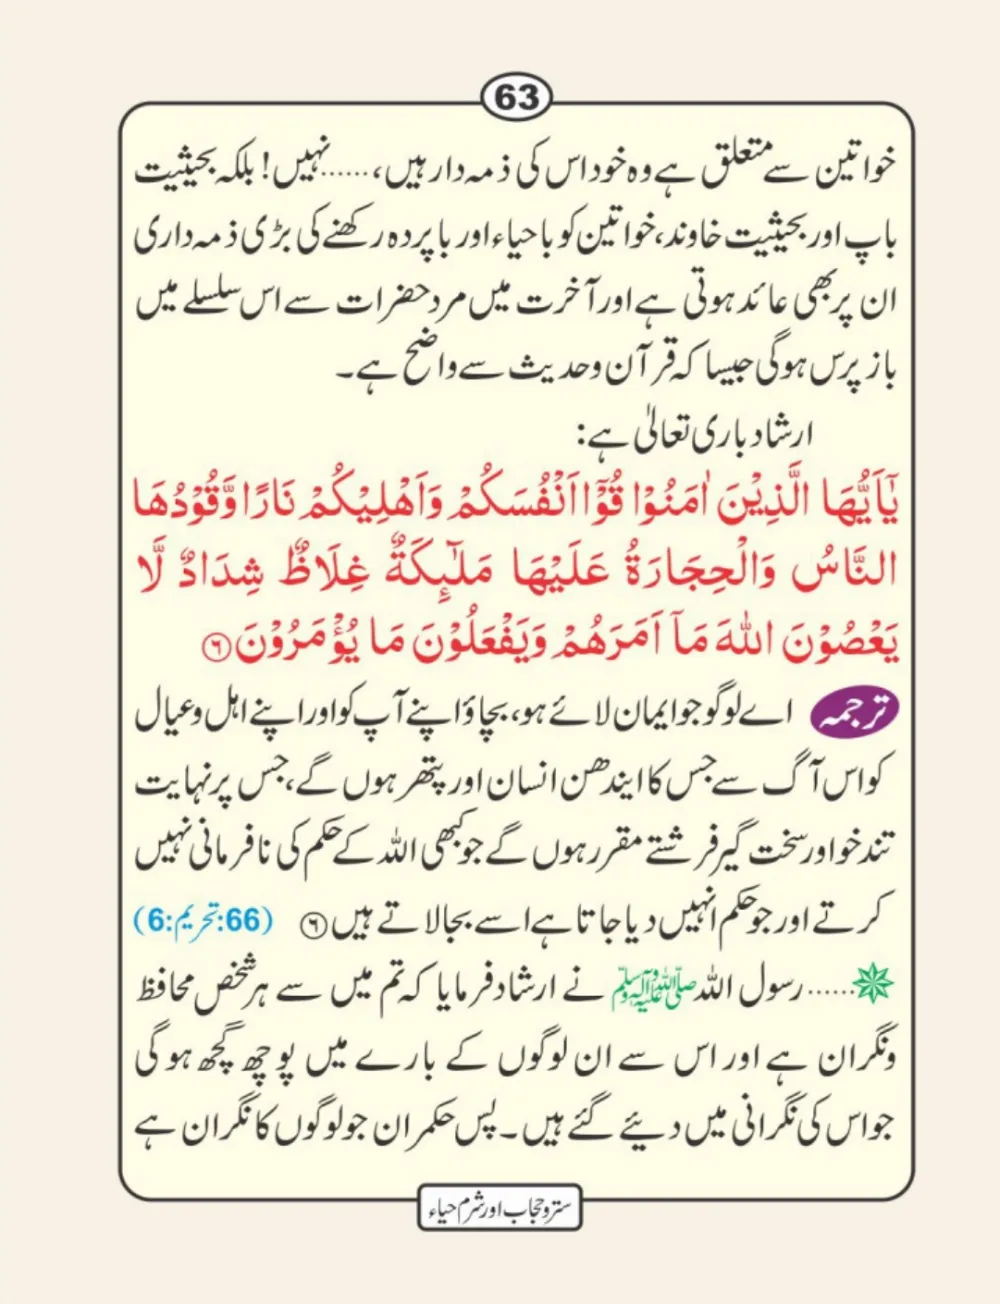 63
خواتین سے متعلق ہے وہ خود اس کی ذمہ دار ہیں، ......نہیں! بلکہ بحیثیت
باپ اور بحیثیت خاوند، خواتین کو باحیاء اور باپردہ رکھنے کی بڑی ذمہ داری
ان پر بھی عائد ہوتی ہے اور آخرت میں مرد حضرات سے اس سلسلے میں
باز پرس ہوگی جیسا کہ قرآن وحدیث سے واضح ہے۔
ارشاد باری تعالیٰ ہے:
يٰۤاَيُّهَا الَّذِيْنَ اٰمَنُوْا قُوْۤا اَنْفُسَكُمْ وَاَهْلِيْكُمْ نَارًا وَّقُوْدُهَا
النَّاسُ وَالْحِجَارَةُ عَلَيْهَا مَلٰٓئِكَةٌ غِلَاظٌ شِدَادٌ لَّا
يَعْصُوْنَ اللّٰهَ مَاۤ اَمَرَهُمْ وَيَفْعَلُوْنَ مَا يُؤْمَرُوْنَ ۶
ترجمہ اے لوگو جو ایمان لائے ہو، بچاؤ اپنے آپ کو اور اپنے اہل وعیال
کو اس آگ سے جس کا ایندھن انسان اور پتھر ہوں گے، جس پر نہایت
تند خو اور سخت گیر فرشتے مقرر ہوں گے جو کبھی اللہ کے حکم کی نافرمانی نہیں
کرتے اور جو حکم انہیں دیا جاتا ہے اسے بجالاتے ہیں ۶ (66:تحریم:6)
......رسول اللہ صلی اللہ علیہ وآلہ وسلم نے ارشاد فرمایا کہ تم میں سے ہر شخص محافظ
ونگران ہے اور اس سے ان لوگوں کے بارے میں پوچھ گچھ ہوگی
جو اس کی نگرانی میں دیئے گئے ہیں۔ پس حکمران جو لوگوں کا نگران ہے
ستر وحجاب اور شرم حیاء